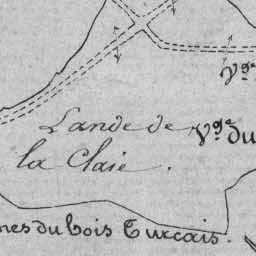 Vge
Lande de
Vge du
la Claie.
nes du bois Turcais.